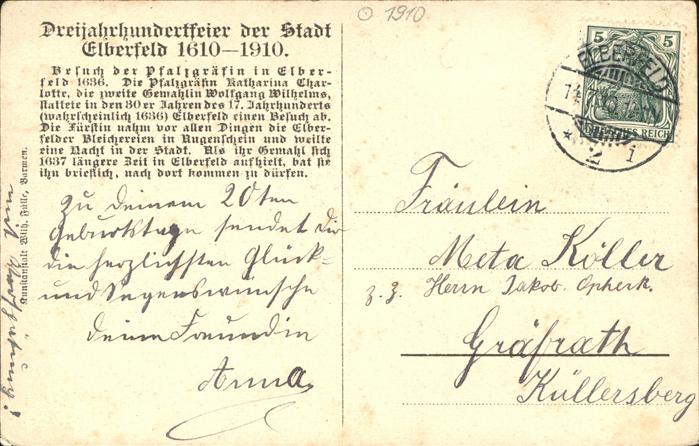 1910
Dreijahrhundertfeier der Stadt
Elberfeld 1610—1910.
Besuch der Pfalzgräfin in Elber-
feld 1636. Die Pfalzgräfin Katharina Char-
lotte, die zweite Gemahlin Wolfgang Wilhelms,
stattete in den 30er Jahren des 17. Jahrhunderts
(wahrscheinlich 1636) Elberfeld einen Besuch ab.
Die Fürstin nahm vor allen Dingen die Elber-
felder Bleichereien in Augenschein und weilte
eine Nacht in der Stadt. Als ihr Gemahl sich
1637 längere Zeit in Elberfeld aufhielt, bat sie
ihn brieflich, nach dort kommen zu dürfen.
Zu deinem 20ten
Geburtstage sendet dir
die herzlichsten Glück-
und Segenswünsche
deine Freundin
Anna
Kunstanstalt Wilh. Fülle, Barmen.
5 5
DEUTSCHES REICH
ELBERFELD
2 i
Fräulein
Meta Köller
z. Z. Herrn Jakob Opherk.
Gräfrath
Küllersberg